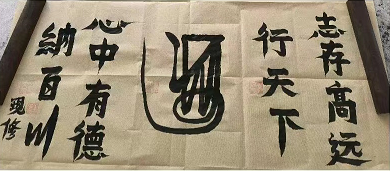 志存高远
行天下
心中有德
納百川